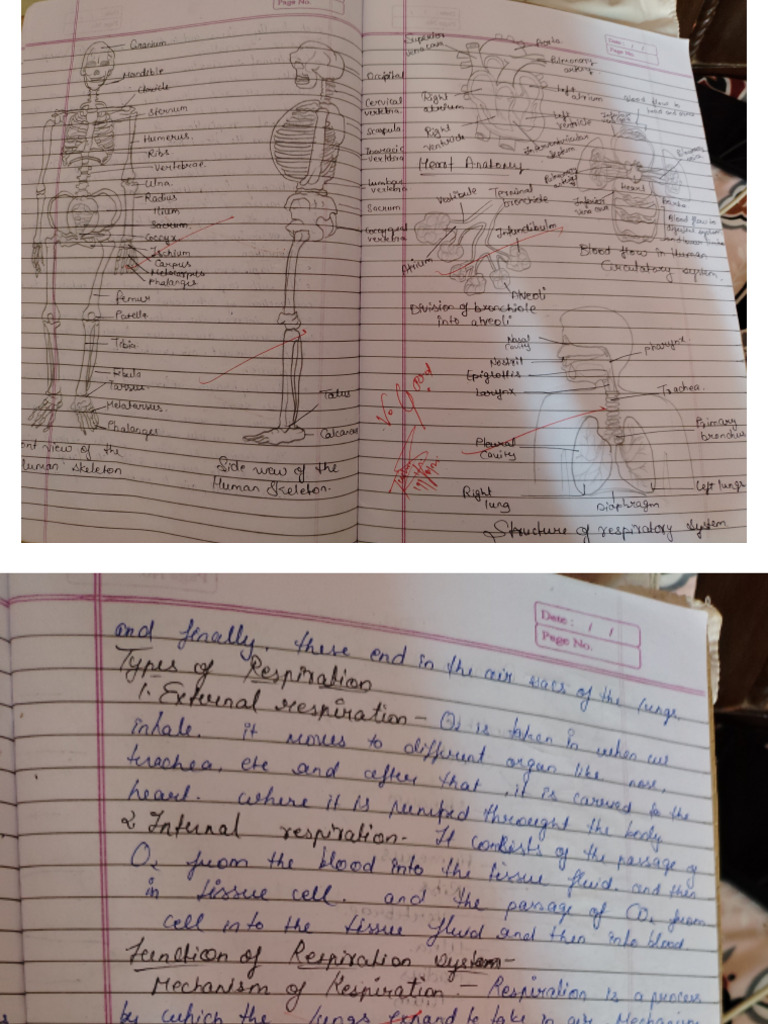 Page No.
Cranium
Mandible
Clavicle
Sternum
Humerus.
Ribs
Vertebrae.
Ulna.
Radius
Ilium
Sacrum
Coccyx
Ischium
Carpus
Metacarpus
Phalanges
Femur
Patella
Tibia
Fibula
Tarsus
Metatarsus.
Phalanges
ont view of the
Human skeleton
Occipital
Cervical
vertebra.
Scapula
Thoracic
vertebra
Lumbar
vertebra
Sacrum
Coccygeal
vertebra
Talus
Calcaneus
Side view of the
Human Skeleton.
Date : / /
Page No.
Superior
vena cava
Aorta
Pulmonary
artery
Right
atrium
Left
atrium
Right
ventricle
Left
ventricle
Interventricular
septum
Heart Anatomy
Blood flow in
Pulmonary
artery
Inferior
vena cava
Heart
Aorta
Blood flow in
Blood flow in Human
Circulatory system.
Vestibule
Terminal
bronchiole
Infundibulm
Atrium
Alveoli
Division of bronchiole
into alveoli
Nasal
Cavity
Nostril
Epiglottis
Larynx
Pharynx
Trachea.
Primary
bronchus
Pleural
Cavity
Right
lung
Left lungs
Diaphragm
Structure of respiratory system
V. Good
Date : / /
Page No.
and finally, these end in the air sacs of the lungs.
Types of Respiration
1. External respiration - O2 is taken in when we
inhale. it moves to different organ like nose,
trachea, etc and after that, it is carried to the
heart. where it is pumped throught the body
2 Internal respiration - It consists of the passage of
O2 from the blood into the tissue fluid. and then
in tissue cell. and the passage of CO2 from
cell into the tissue fluid and then into blood
Function of Respiration system -
Mechanism of Respiration :- Respiration is a process
by which the lungs expand to take in air. Mechanism